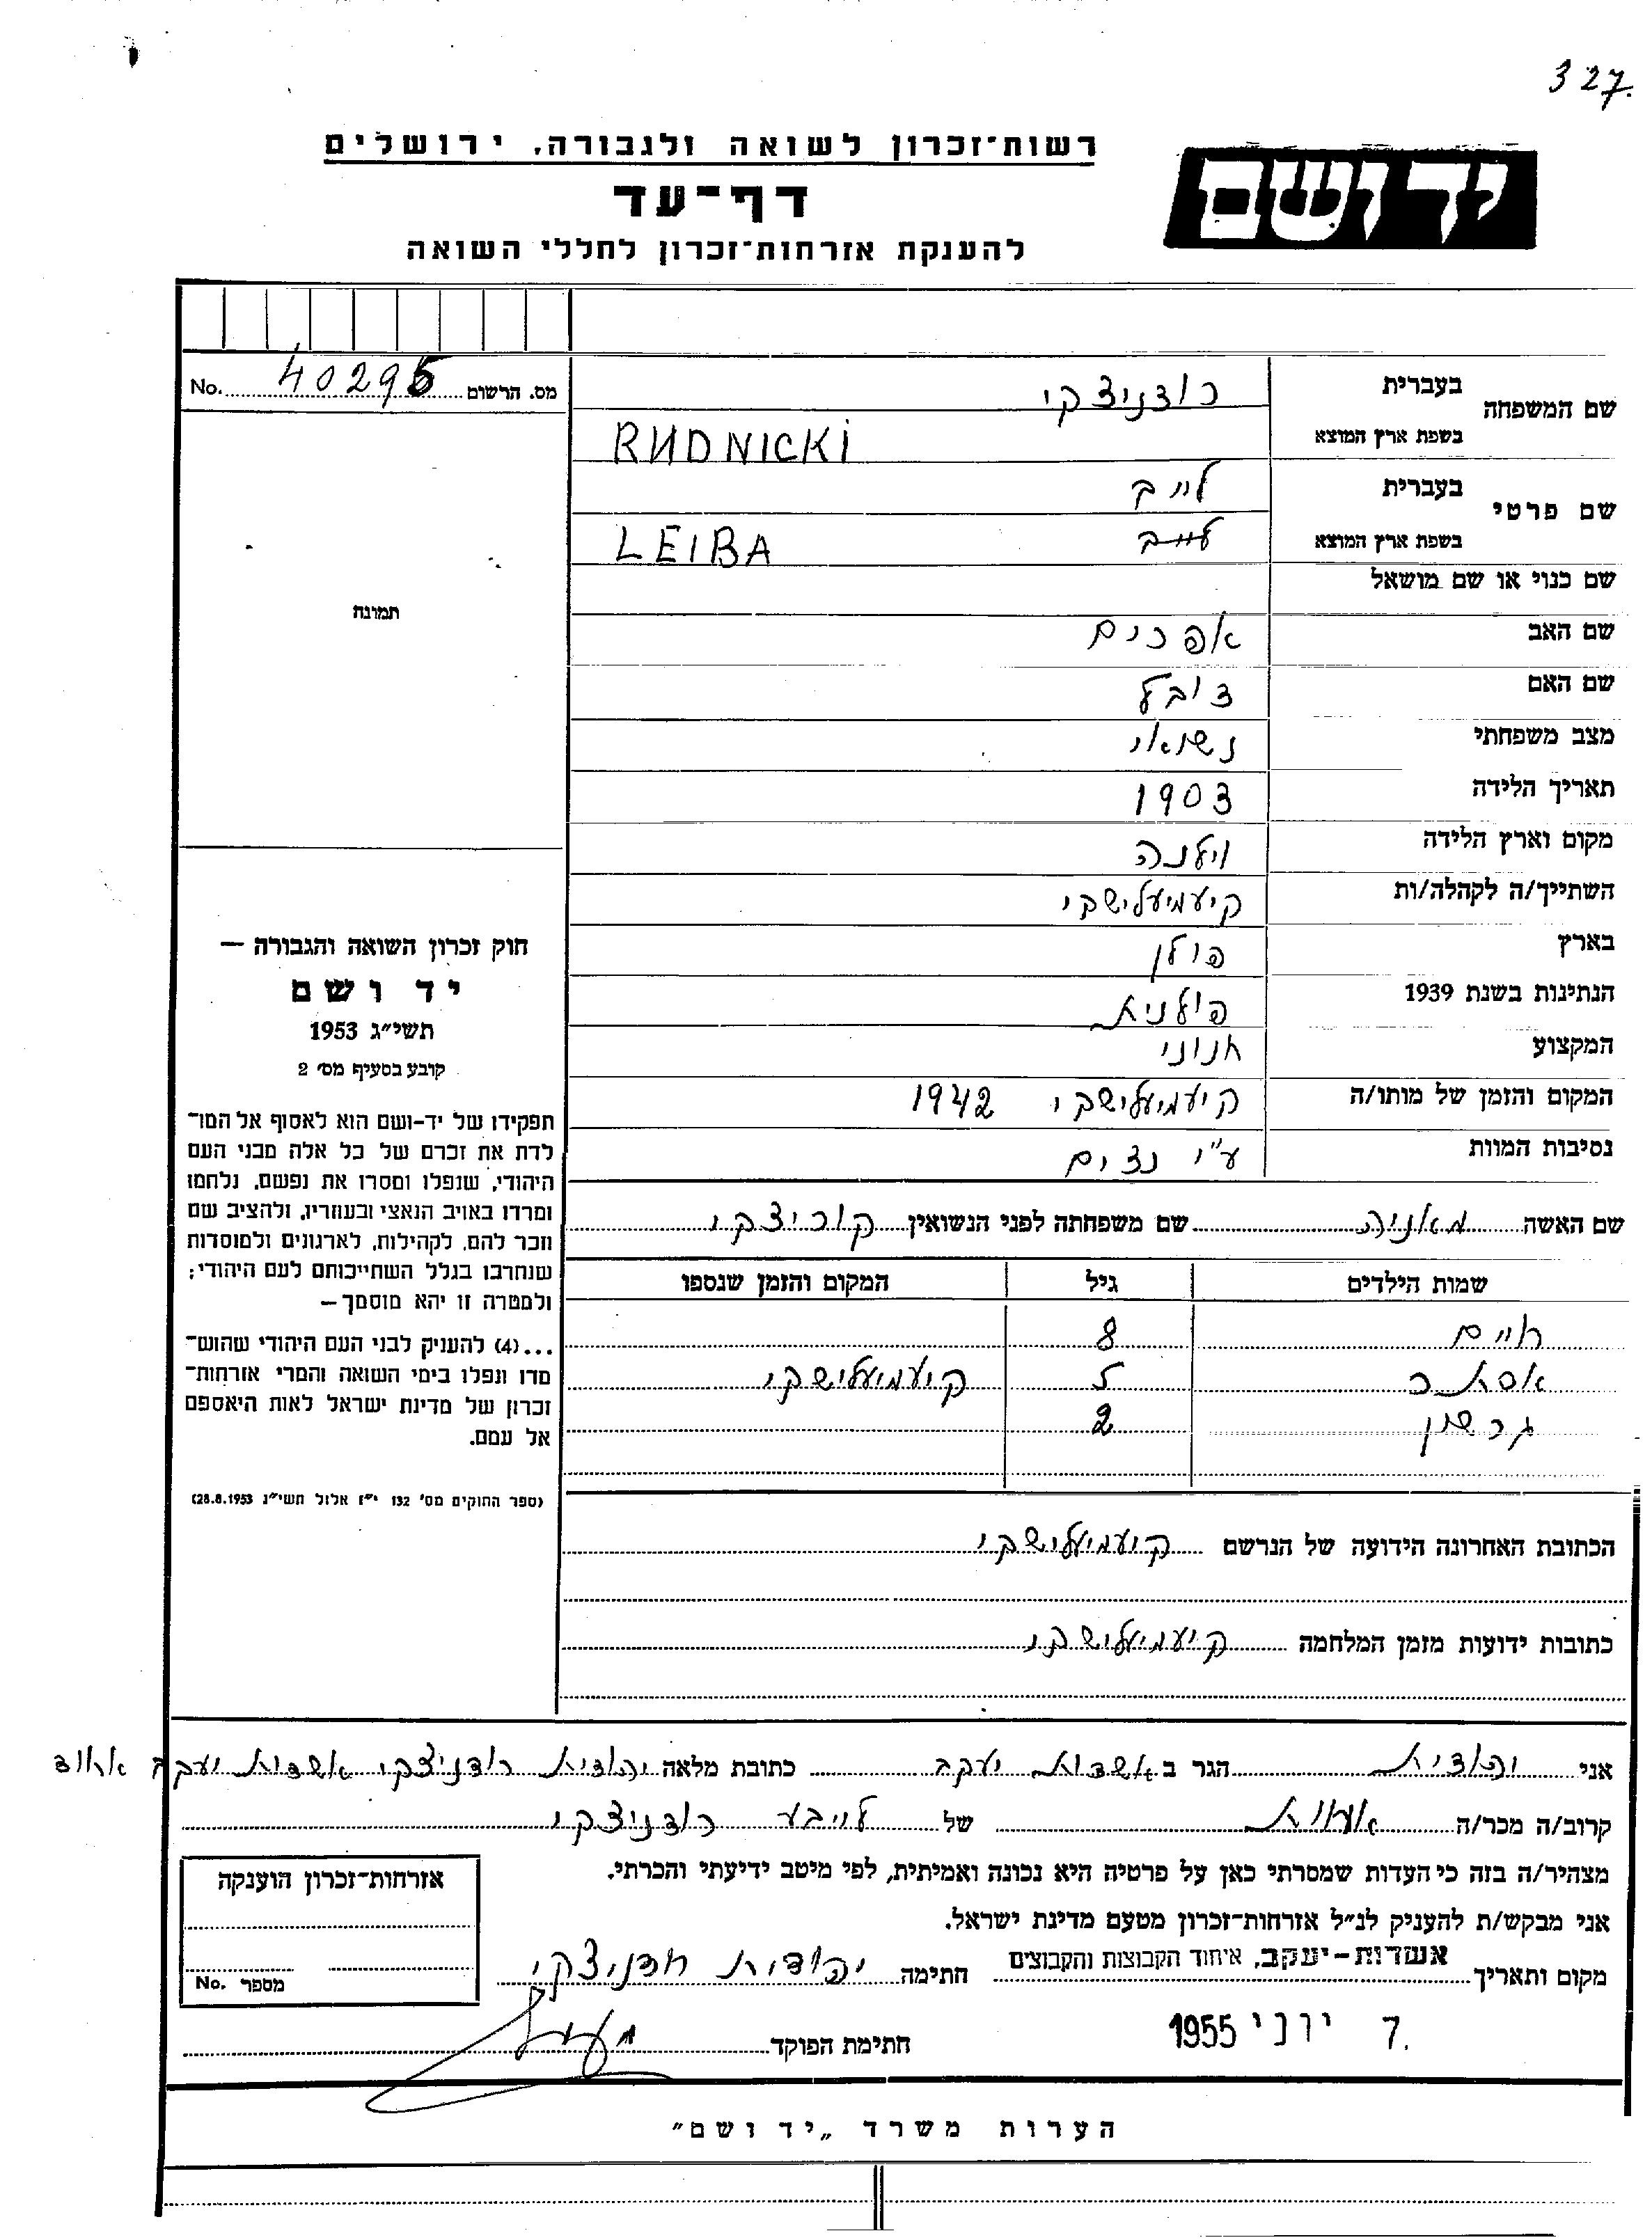 327.
רשות־זכרון לשואה ולגבורה, ירושלים
יד ושם
דף־עד
להענקת אזרחות־זכרון לחללי השואה
מס. הרשום 40295 No.
שם המשפחה
בעברית רודניצקי
בשפת ארץ המוצא RUDNICKI
שם פרטי
בעברית לייב
בשפת ארץ המוצא לייב LEIBA
שם כנוי או שם מושאל
שם האב אפרים
שם האם
מצב משפחתי נשואי
תאריך הלידה 1903
מקום וארץ הלידה וילנה
השתייך/ה לקהלה/ות קיעמיעלישקי
בארץ פולן
הנתינות בשנת 1939 פולנית
המקצוע חנוני
המקום והזמן של מותו/ה קיעמיעלישקי 1942
נסיבות המוות ע"י נצים
שם האשה מאניה שם משפחתה לפני הנשואין קוריצקי
שמות הילדים גיל המקום והזמן שנספו
חיים 8
אסתר 5 קיעמיעלישקי
גרשון 2
הכתובת האחרונה הידועה של הנרשם קיעמיעלישקי
כתובות ידועות מזמן המלחמה קיעמיעלישקי
תמונה
חוק זכרון השואה והגבורה —
יד ושם
תשי״ג 1953
קובע בסעיף מס׳ 2
תפקידו של יד-ושם הוא לאסוף אל המו־
לדת את זכרם של כל אלה מבני העם
היהודי, שנפלו ומסרו את נפשם, נלחמו
ומרדו באויב הנאצי ובעוזריו, ולהציב שם
וזכר להם, לקהילות, לארגונים ולמוסדות
שנחרבו בגלל השתייכותם לעם היהודי;
ולמטרה זו יהא מוסמך—
...(4) להעניק לבני העם היהודי שהוש־
מדו ונפלו בימי השואה והמרי אזרחות־
זכרון של מדינת ישראל לאות היאספם
אל עמם.
(ספר החוקים מס׳ 132 י״ז אלול תשי״ג 28.8.1953)
אני יהודית הגר ב אשדות יעקב כתובת מלאה יהודית רודניצקי אשדות יעקב איחוד
קרוב/ה מכר/ה אחות של לייבע רודניצקי
מצהיר/ה בזה כי העדות שמסרתי כאן על פרטיה היא נכונה ואמיתית, לפי מיטב ידיעתי והכרתי.
אני מבקש/ת להעניק לנ״ל אזרחות־זכרון מטעם מדינת ישראל.
מקום ותאריך אשדות-יעקב, איחוד הקבוצות והקבוצים חתימה יהודית רודניצקי
7. יוני 1955
חתימת הפוקד
אזרחות־זכרון הוענקה
מספר No.
הערות משרד „יד ושם״